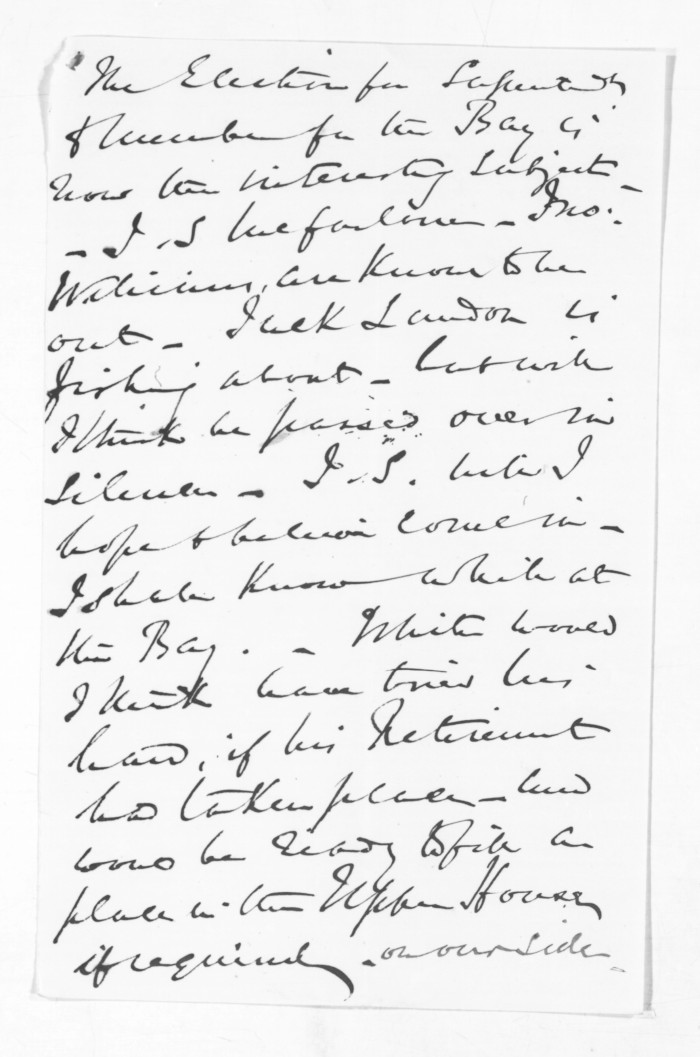 The Election for Superintendt
& Member for the Bay is
now the interesting subject -
- J. S. McFarlane - Jno:
Williams, are known to be
out - Jack Lundon is
fishing about - but will
I think be passed over in
silence - J. S. will I
hope & believe come in -
I shall know while at
the Bay. - White would
I think have tried his
hand, if his Retirement
had taken place - and
would be ready to fill a
place in the Upper House,
if required, - on our side -